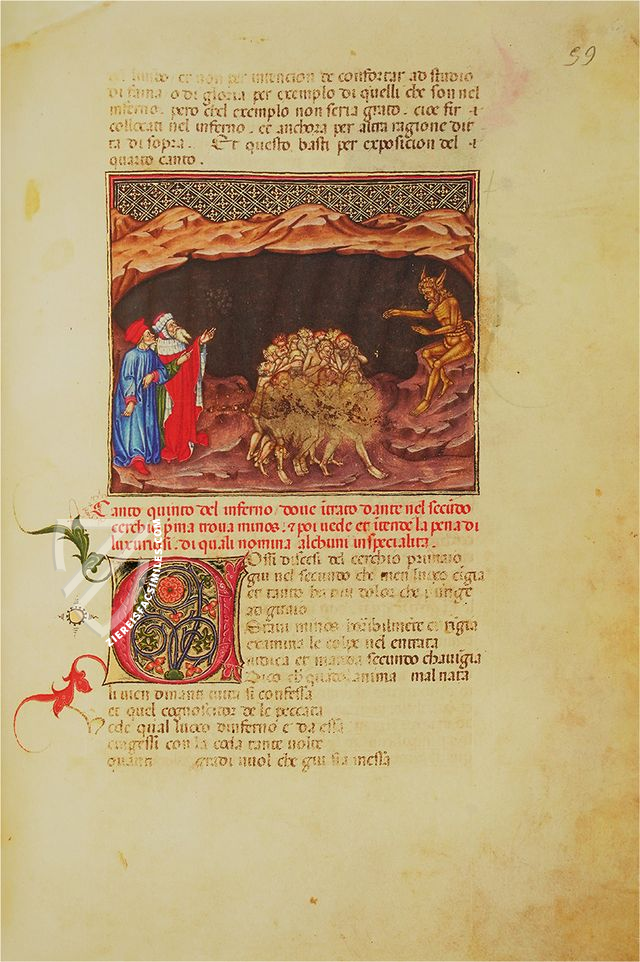 59
et non per intencion de confortar ad studio
di fama o di gloria per exemplo di quelli che son nel
inferno. pero chel exemplo non seria grato. cioe sir
collocati nel inferno. et anchora per altra ragione dit
ta di sopra. Et questo basti per exposicion del
quarto canto.
Canto quinto del inferno dove itrato dante nel secūdo
cerchio pͥma trova minos. & poi vede et ītende la pena di
luxuriusi. di quali nomina alchuni in specialita.
Ossi discesi del cerchio primaio
giu nel secundo che men luoco cigia
et tanto piu dolor che punge
ad guaio
Stavi minos horibilmente et rigia
examina le colpe nel entrata
iudica et manda secundo chavigia
Dico ch quado anima mal nata
li vien dinanti tutta si confessa
et quel cognoscitor de le peccata
vede qual luoco dinferno e da essa
cingessi con la coda tante volte
gradi vuol che giu sia messa
ZIEREISFACSIMILES.COM